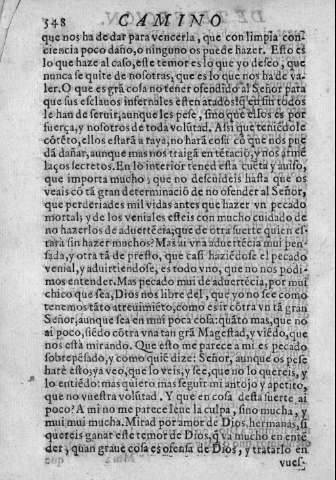 548 CAMINO
que nos ha de dar para vencerla, que con limpia con
ciencia poco daño, o ninguno os puede hazer. Esto es
lo que haze al caso, este temor es lo que yo deseo, que
nunca se quite de nosotras, que es lo que nos ha de va-
ler. O que es grã cosa no tener ofendido al Señor para
que sus esclauos infernales estẽ atados! q̃ en fin todos
le han de seruir, aunque les pese, sino que ellos es por
fuerça, y nosotros de toda volũtad. Assi que teniẽdole
cõtẽto, ellos estarã a raya, no harã cosa cõ que nos pue
dã dañar, aunque mas nos traigã en tẽtaciõ, y nos armẽ
laços secretos. En lo interior tened esta cuẽta y auiso,
que importa mucho, que no descuideis hasta que os
veais cõ tã gran determinació de no ofender al Señor,
que perderiades mil vidas antes que hazer vn pecado
mortal; y de los veniales esteis con mucho cuidado de
no hazerlos de aduertẽcia; que de otra suerte quien es-
tarà sin hazer muchos? Mas ai vna aduertẽcia mui pen-
sada, y otra tã de presto, que casi haziẽdose el pecado
venial, y aduirtiendose, es todo vno, que no nos podi-
mos entender. Mas pecado mui de aduertẽcia, por mui
chico que sea, Dios nos libre del, que yo no sè como
tenemos tãto atreuimiẽto, como es ir cõtra vn tã gran
Señor, aunque sea en mui poca cosa: quãto mas, que no
ai poco, siẽdo cõtra vna tan grã Magestad, y viẽdo, que
nos està mirando. Que esto me parece a mi es pecado
sobrepẽsado, y como quiẽ dize: Señor, aunque os pese
harè esto; ya veo, que lo veis, y sè, que no lo quereis, y
lo entiẽdo: mas quiero mas seguir mi antojo y apetito,
que no vuestra volũtad. Y que en cosa desta suerte ai
poco? A mi no me parece leue la culpa, sino mucha, y
mui mui mucha. Mirad por amor de Dios, hermanas, si
quereis ganar este temor de Dios, q̃ va mucho en ente
der, quan graue cosa es ofensa de Dios, y tratarlo en
vues-